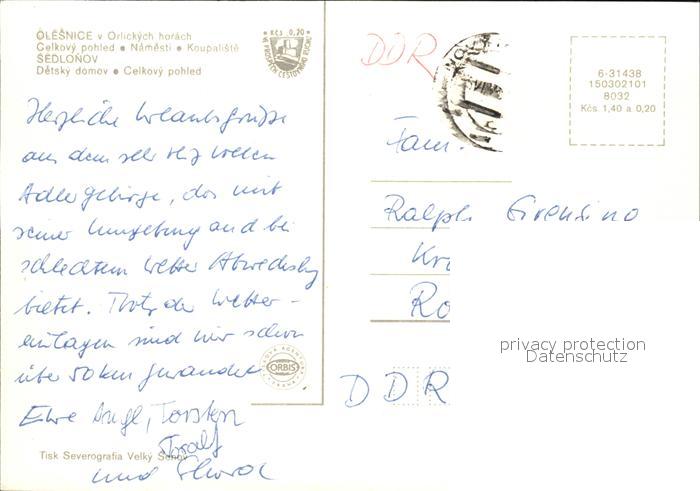 OLEŠNICE v Orlických horách
Celkový pohled ● Náměstí ● Koupaliště
SEDLOŇOV
Dětský domov ● Celkový pohled
Kčs 0,20
VE PROSPĚCH CESTOVNÍHO RUCHU
Herzliche Urlaubsgrüße
aus dem
Adlergebirge, das mit
seiner Umgebung auch bei
schlechtem Wetter Abwechslung
bietet. Trotz der Wetter-
einlagen sind wir schon
über 50 km gewandert
Eure Torsten
Toralf
und
ORBIS
Tisk Severografia Velký Šenov
DDR
6-31438
150302101
8032
Kčs. 1,40 a 0,20
Fam.
Ralph
Kr
Ro
privacy protection
Datenschutz
DDR